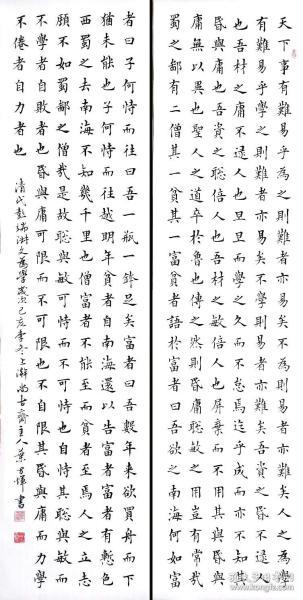 天下事有難易乎為之則難者亦易矣不為則易者亦難矣人之為學
有難易乎學之則難者亦易矣不學則易者亦難矣吾資之昏不逮人
也吾材之庸不逮人也旦旦而學之久而不怠焉迄乎成而亦不知其
昏與庸也吾資之聰倍人也吾材之敏倍人也屏棄而不用其與昏與
庸無以異也聖人之道卒於魯也傳之然則昏庸聰敏之用豈有常哉
蜀之鄙有二僧其一貧其一富貧者語於富者曰吾欲之南海何如富
者曰子何恃而往曰吾一瓶一缽足矣富者曰吾數年來欲買舟而下
猶未能也子何恃而往越明年貧者自南海還以告富者富者有慚色
西蜀之去南海不知幾千里也僧富者不能至而貧者至焉人之立志
顧不如蜀鄙之僧哉是故聰與敏可恃而不可恃也自恃其聰與敏而
不學者自敗者也昏與庸可限而不可限也不自限其昏與庸而力學
不倦者自力者也
清代彭端淑文為學歲次己亥季冬上澣尚古齋主人葉書